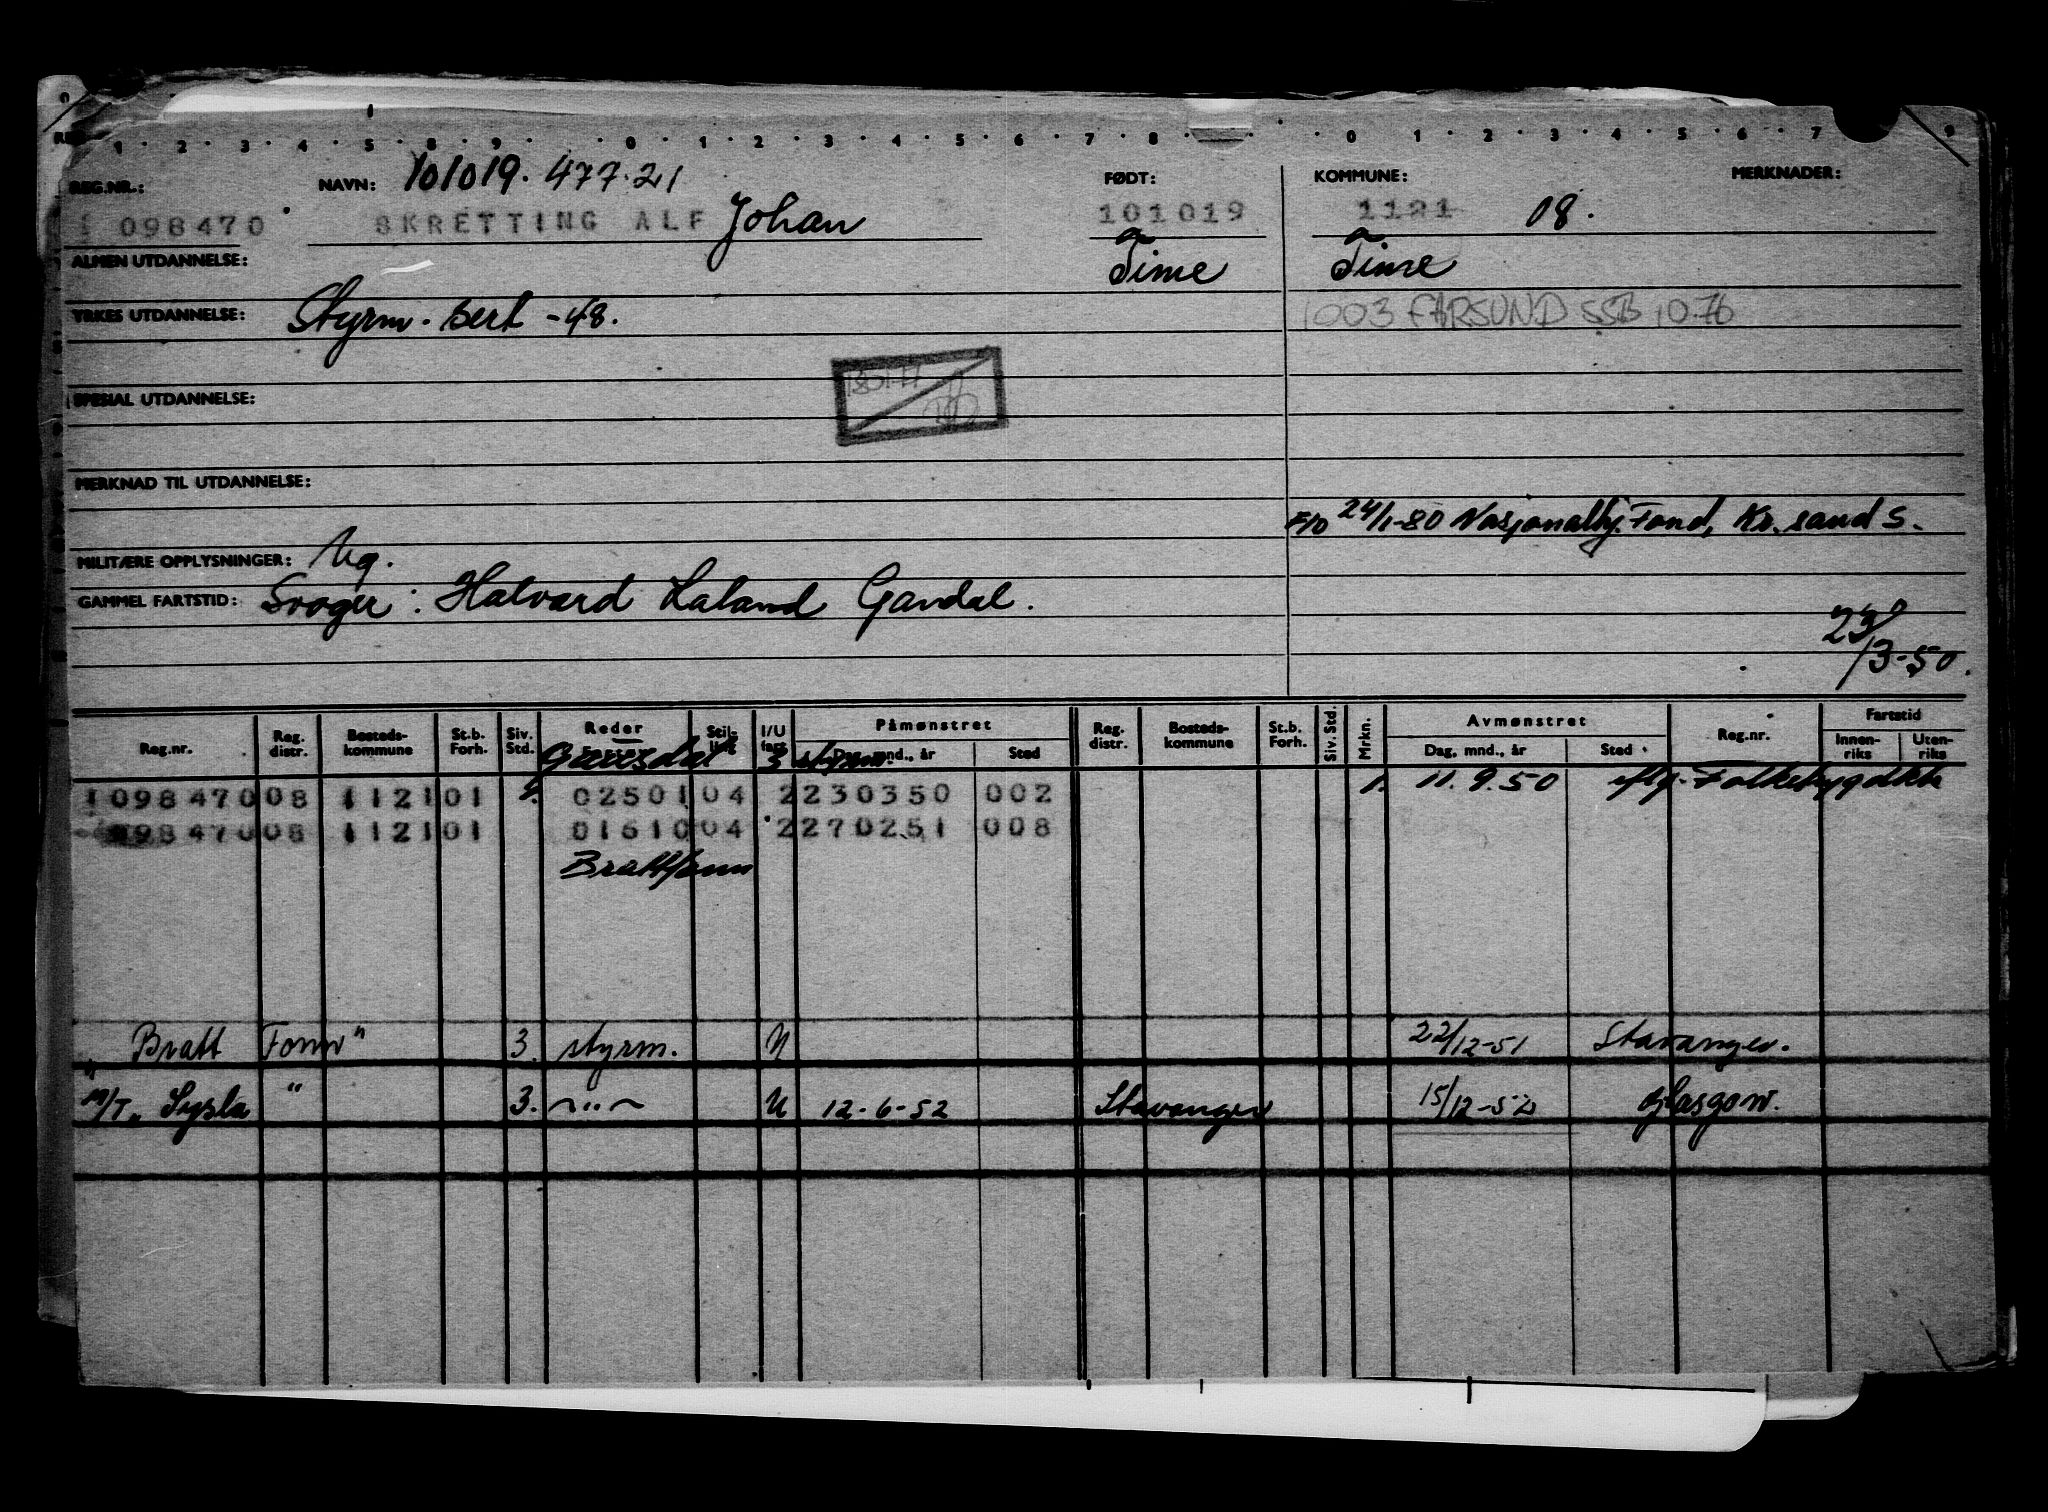 0 1 2 3 4 5 8 9 0 1 2 3 4 5 6 7 8 0 1 2 3 4 5 6 7 9
REG.NR.: NAVN: 101019. 477.21 FØDT: KOMMUNE: MERKNADER:
1 098470 SKRETTING ALF Johan 101019 1121 08.
ALMEN UTDANNELSE: Time Time
YRKES UTDANNELSE: Styrm. sert -48. 1003 FARSUND SSB 10.76
SPESIAL UTDANNELSE:
MERKNAD TIL UTDANNELSE:
F/O 24/1-80 Nasjonalby. Fond, Kr. sand S.
MILITÆRE OPPLYSNINGER: Ug.
GAMMEL FARTSTID: Svoger: Halvard Laland Gandal.
23/3-50.
Reg.nr. Reg. distr. Bosteds-kommune St.b. Forh. Siv. Std. Reder Stil- I/U Påmønstret Dag, mnd., år Sted Reg. distr. Bosteds-kommune St.b. Forh. Siv. Std. Mrkn. Avmønstret Dag, mnd., år Sted Reg.nr. Fartstid Innen-riks Uten-riks
3 styrm.
1 098470 08 1121 01 02501 04 2 230350 002 1. 11.9.50
098470 08 1121 01 01610 04 2 270251 008
Brattfonn
"Bratt Fonn" 3. styrm. U 22/12-51 Stavanger.
M/T "Sysla" 3. -"- U 12-6-52 Stavanger 15/12-52 Glasgow.